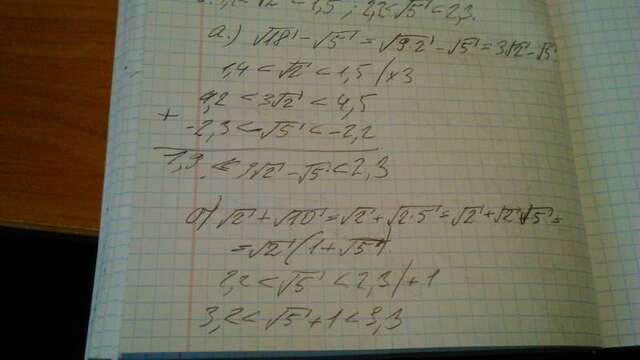 а.) √18 - √5 = √9·2 - √5 = 3√2 - √5
1,4 < √2 < 1,5 | ×3
4,2 < 3√2 < 4,5
+
-2,3 < -√5 < -2,2
1,9 < 3√2 - √5 < 2,3
б) √2 + √10 = √2 + √2·5 = √2 + √2·√5 =
= √2 (1 + √5)
2,2 < √5 < 2,3 | +1
3,2 < √5 + 1 < 3,3